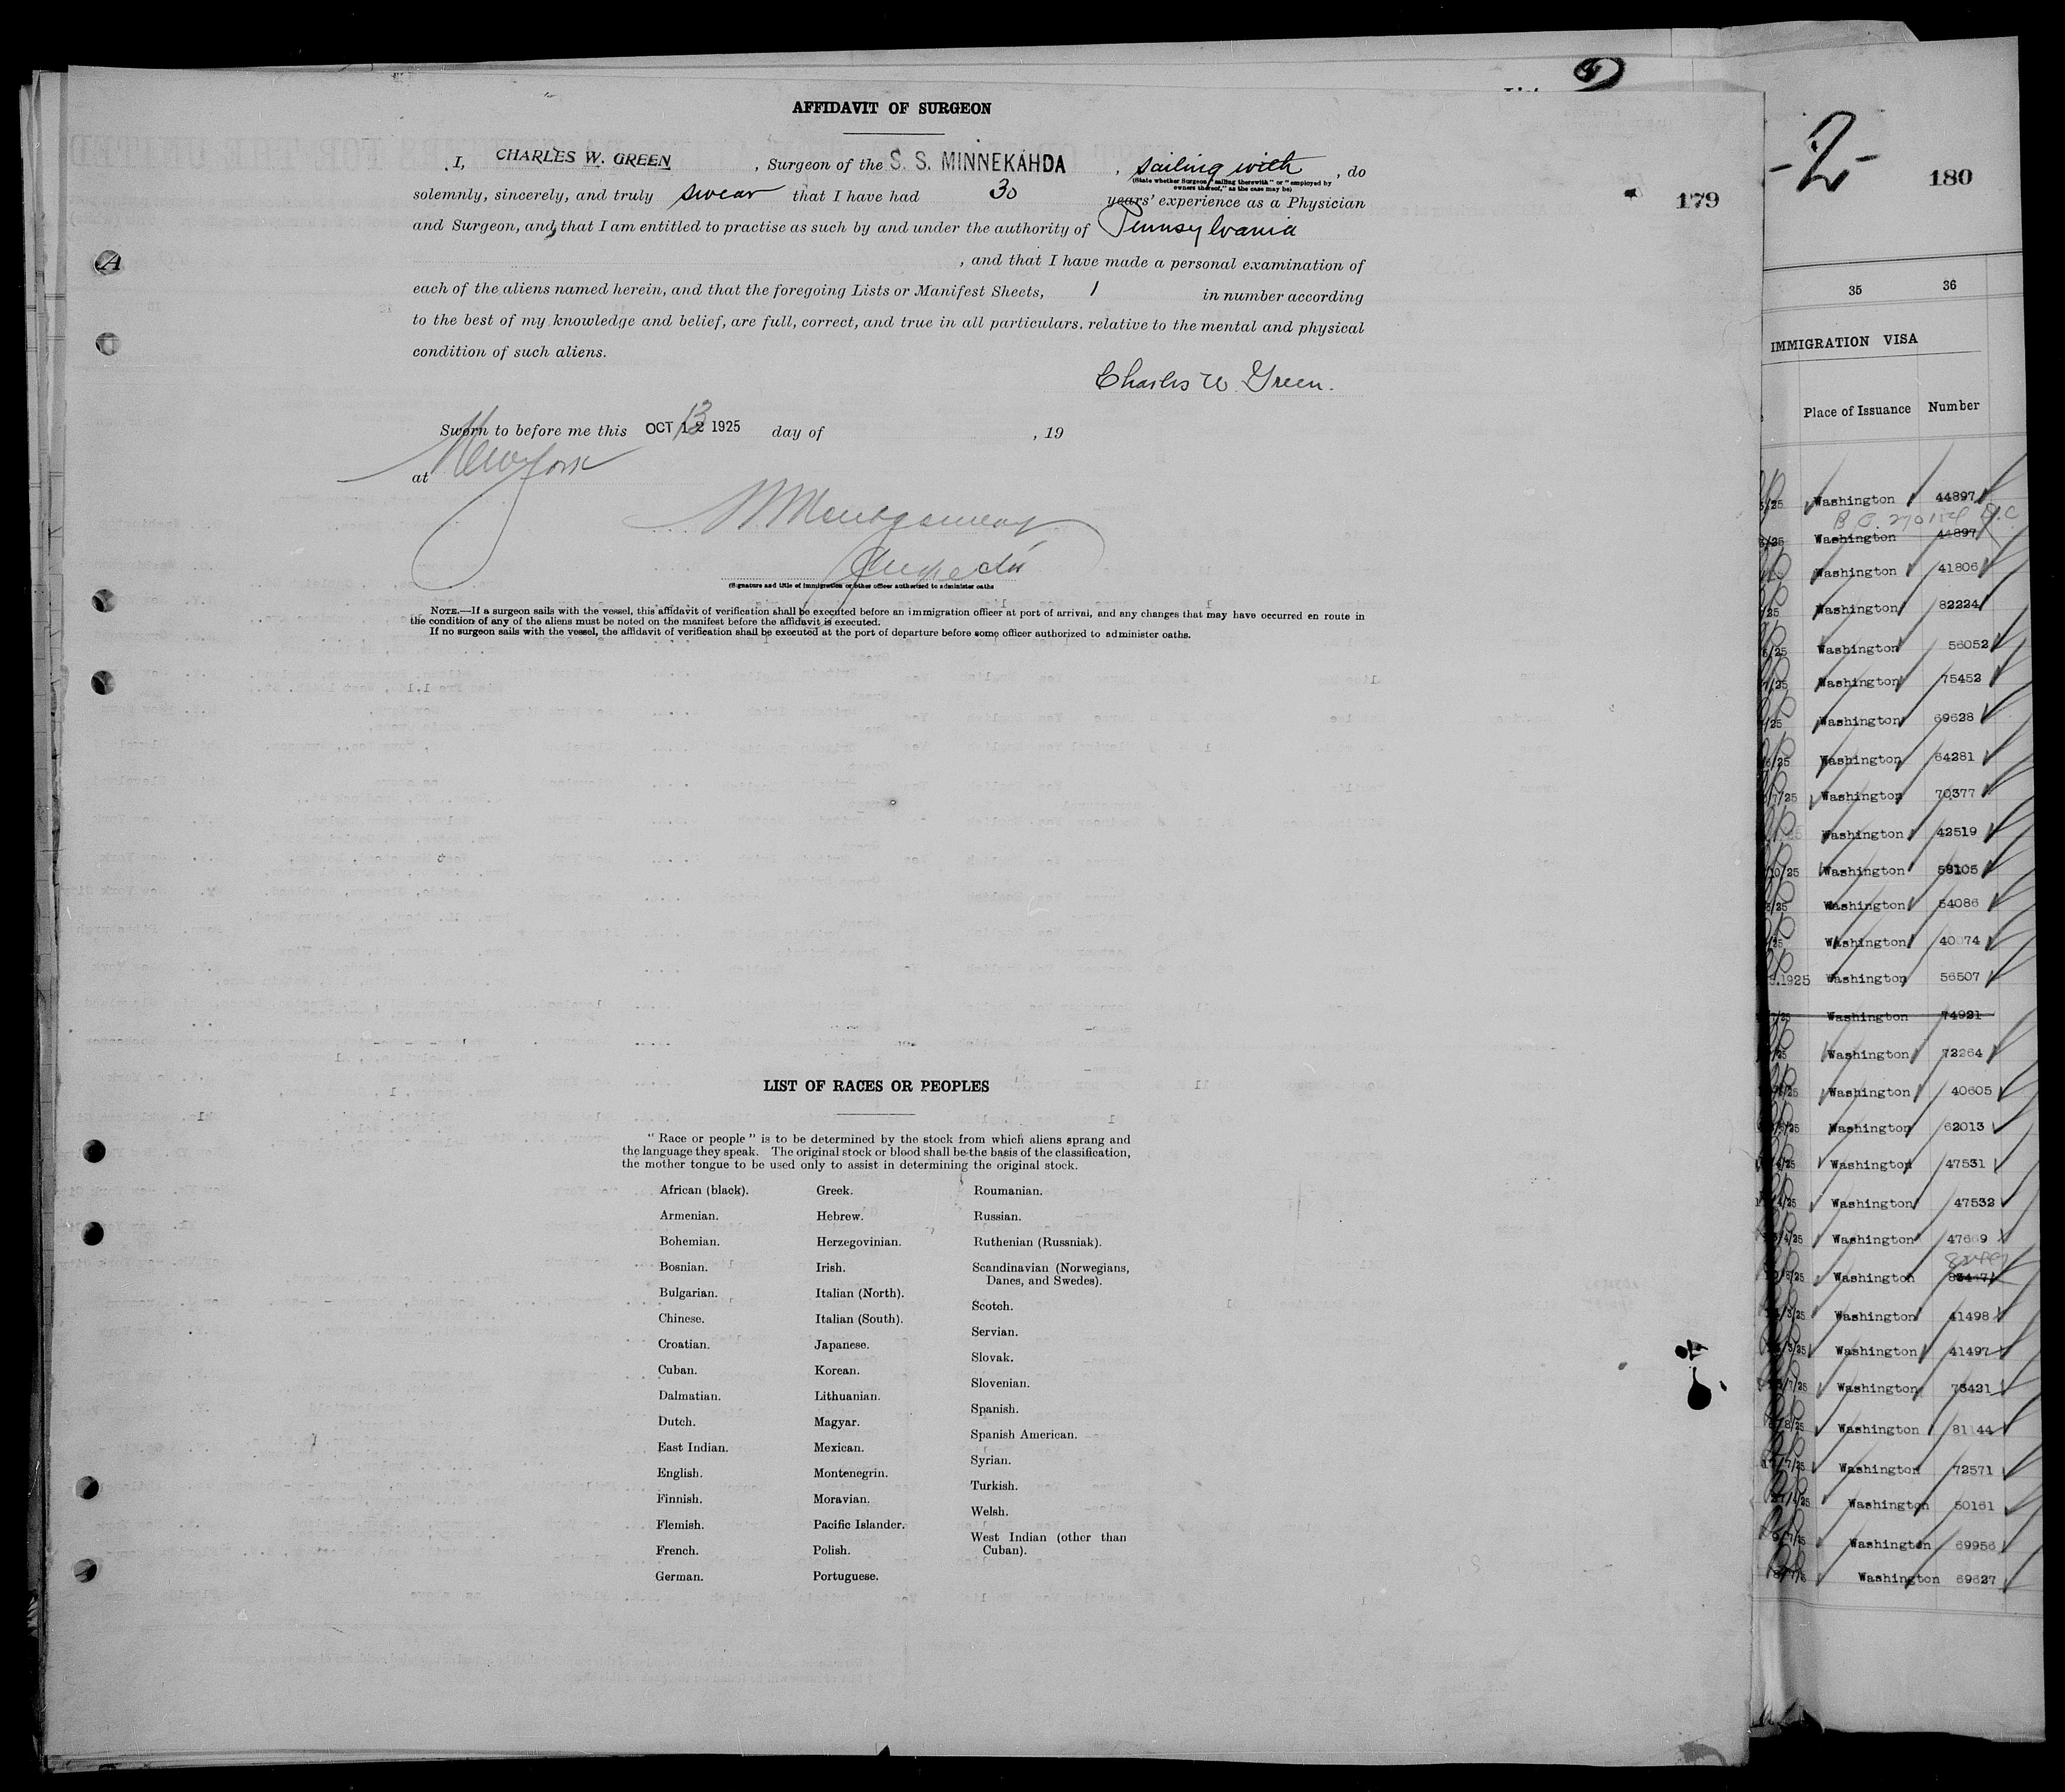 AFFIDAVIT OF SURGEON
I, CHARLES W. GREEN , Surgeon of the S. S. MINNEKAHDA , sailing with , do
(State whether Surgeon "sailing therewith" or "employed by
owners thereof," as the case may be)
solemnly, sincerely, and truly swear that I have had 30 years' experience as a Physician
and Surgeon, and that I am entitled to practise as such by and under the authority of Pennsylvania
, and that I have made a personal examination of
each of the aliens named herein, and that the foregoing Lists or Manifest Sheets, 1 in number according
to the best of my knowledge and belief, are full, correct, and true in all particulars, relative to the mental and physical
condition of such aliens.
Charles W. Green.
Sworn to before me this OCT 12 1925 13 day of , 19
at New York
Montgomery
Inspector
(Signature and title of immigration or other officer authorized to administer oaths
NOTE.—If a surgeon sails with the vessel, this affidavit of verification shall be executed before an immigration officer at port of arrival, and any changes that may have occurred en route in
the condition of any of the aliens must be noted on the manifest before the affidavit is executed.
If no surgeon sails with the vessel, the affidavit of verification shall be executed at the port of departure before some officer authorized to administer oaths.
LIST OF RACES OR PEOPLES
"Race or people" is to be determined by the stock from which aliens sprang and
the language they speak. The original stock or blood shall be the basis of the classification,
the mother tongue to be used only to assist in determining the original stock.
African (black).
Armenian.
Bohemian.
Bosnian.
Bulgarian.
Chinese.
Croatian.
Cuban.
Dalmatian.
Dutch.
East Indian.
English.
Finnish.
Flemish.
French.
German.
Greek.
Hebrew.
Herzegovinian.
Irish.
Italian (North).
Italian (South).
Japanese.
Korean.
Lithuanian.
Magyar.
Mexican.
Montenegrin.
Moravian.
Pacific Islander.
Polish.
Portuguese.
Roumanian.
Russian.
Ruthenian (Russniak).
Scandinavian (Norwegians,
Danes, and Swedes).
Scotch.
Servian.
Slovak.
Slovenian.
Spanish.
Spanish American.
Syrian.
Turkish.
Welsh.
West Indian (other than
Cuban).
179
-2-
180
35 36
IMMIGRATION VISA
Place of Issuance Number
Washington 44897
Washington 44897
Washington 41806
Washington 82224
Washington 56052
Washington 75452
Washington 69628
Washington 64281
Washington 70377
Washington 42519
Washington 58105
Washington 54086
Washington 40074
1925 Washington 56507
Washington 74921
Washington 72264
Washington 40605
Washington 62013
Washington 47531
Washington 47532
Washington 47669
Washington
Washington 41498
Washington 41497
Washington 73421
Washington 81144
Washington 72571
Washington 50161
Washington 69956
Washington 69627